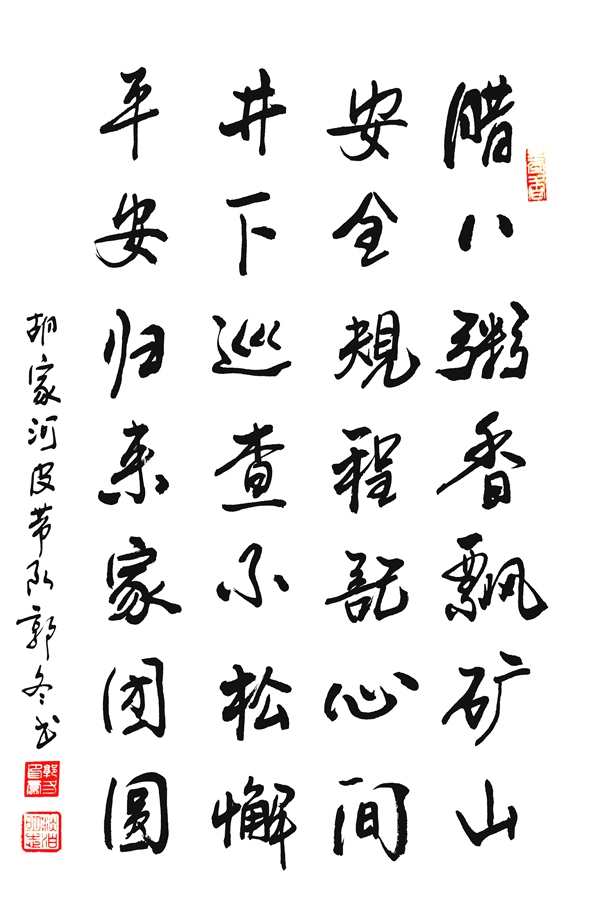 腊八粥香飘矿山
安全规程记心间
井下巡查不松懈
平安归来家团圆
胡家河皮带队郭冬书